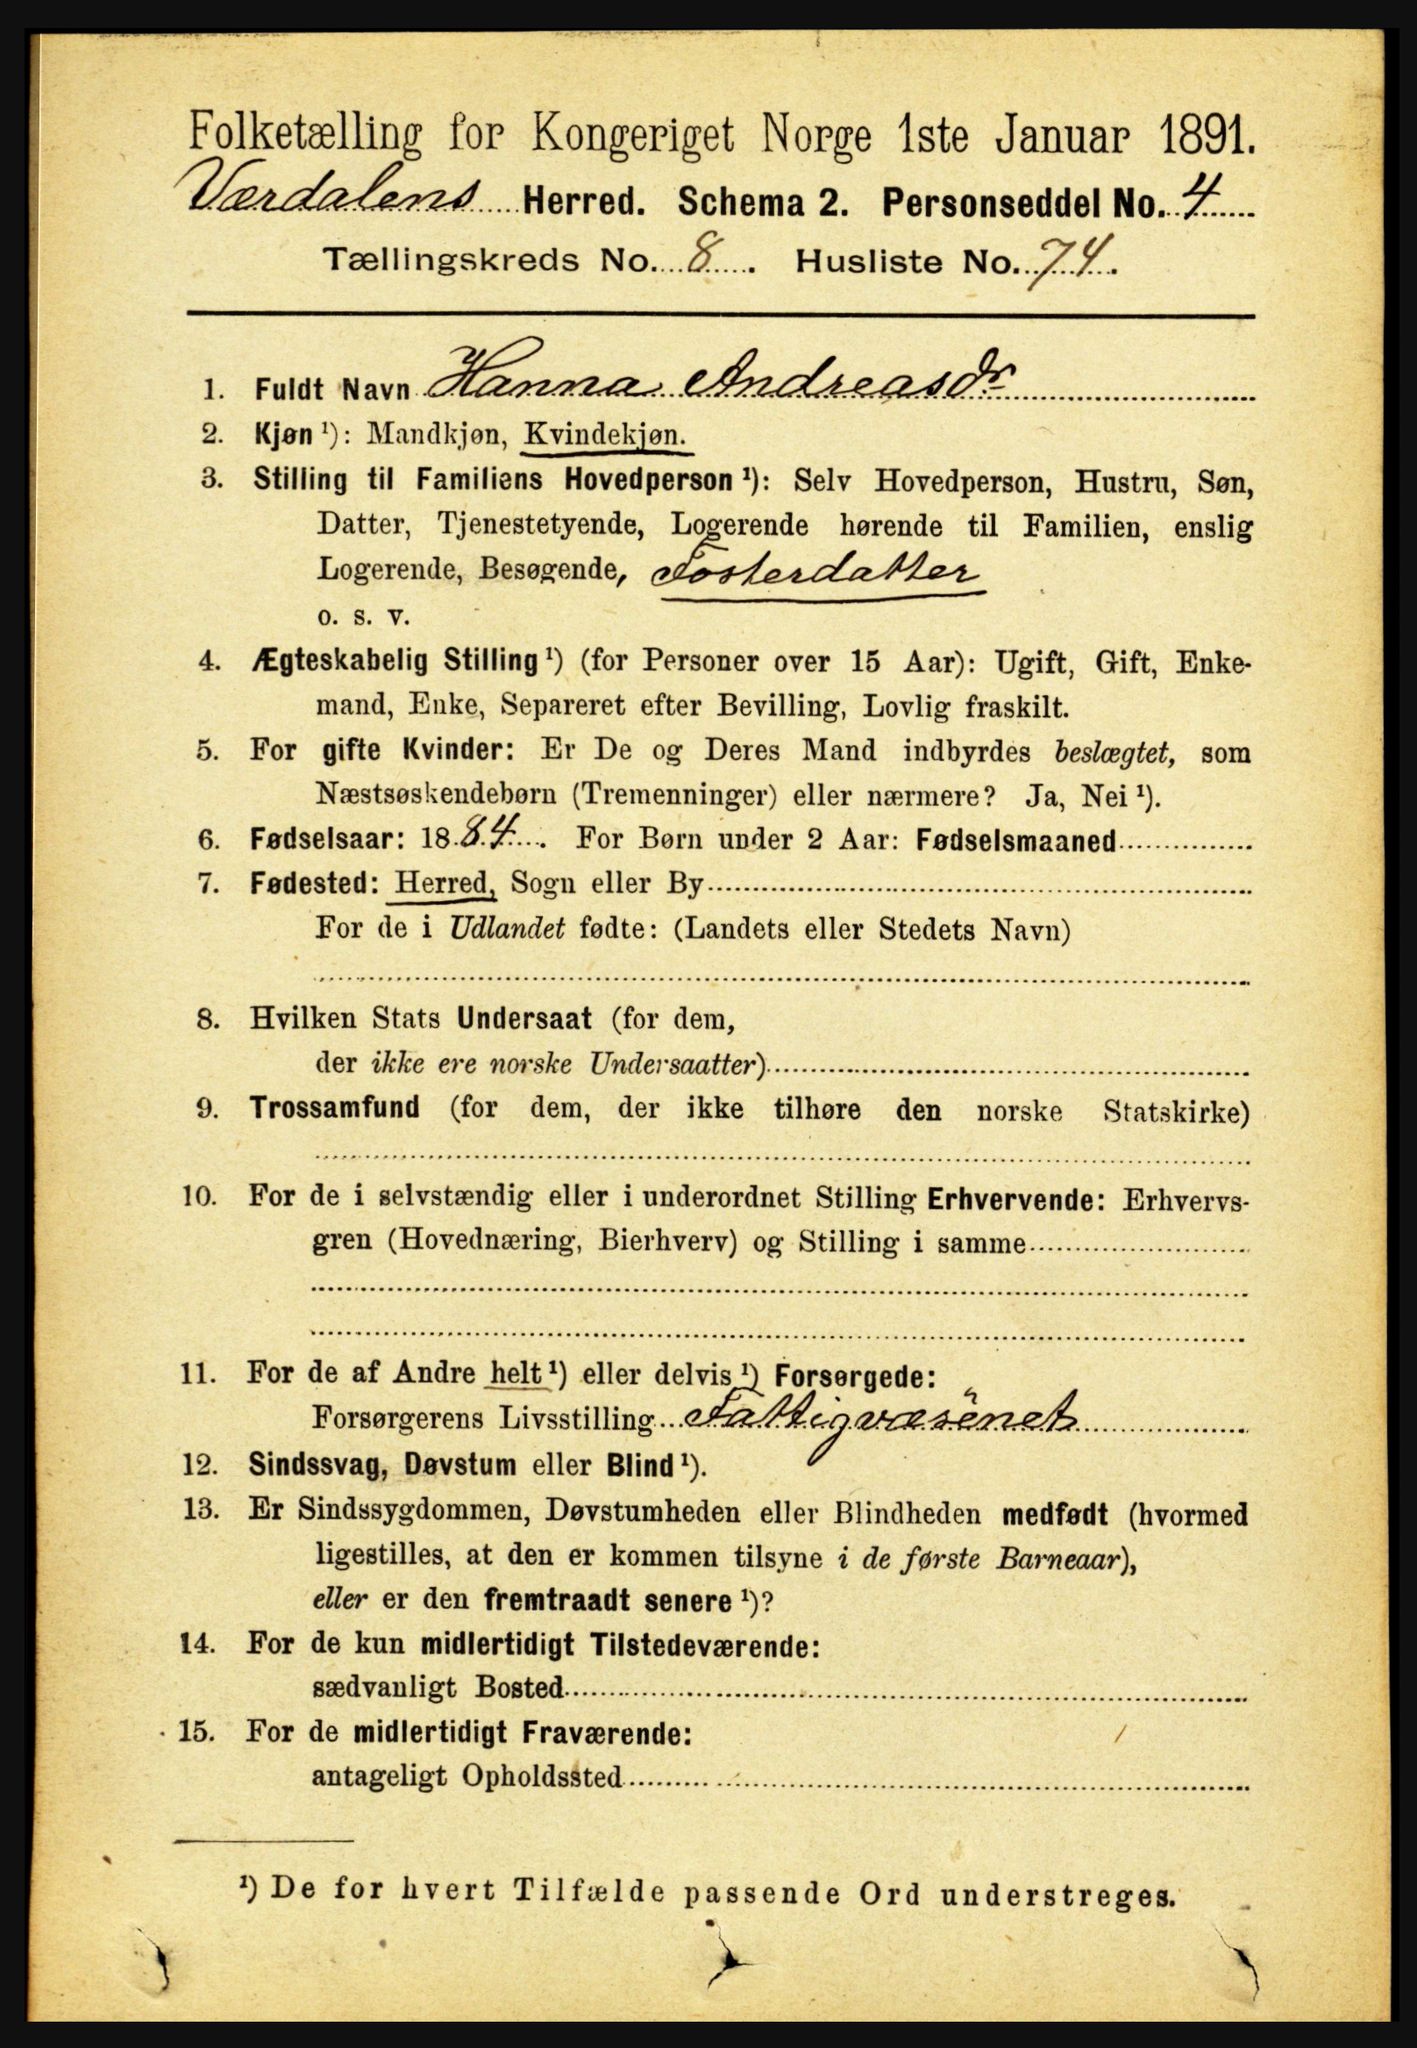 Folketælling for Kongeriget Norge 1ste Januar 1891.
Værdalens Herred. Schema 2. Personseddel No. 4
Tællingskreds No. 8. Husliste No. 74.
1. Fuldt Navn Hanna Andreasdr
2. Kjøn ¹): Mandkjøn, Kvindekjøn.
3. Stilling til Familiens Hovedperson ¹): Selv Hovedperson, Hustru, Søn,
Datter, Tjenestetyende, Logerende hørende til Familien, enslig
Logerende, Besøgende, Fosterdatter
o. s. v.
4. Ægteskabelig Stilling ¹) (for Personer over 15 Aar): Ugift, Gift, Enke-
mand, Enke, Separeret efter Bevilling, Lovlig fraskilt.
5. For gifte Kvinder: Er De og Deres Mand indbyrdes beslægtet, som
Næstsøskendebørn (Tremenninger) eller nærmere? Ja, Nei ¹).
6. Fødselsaar: 1884. For Børn under 2 Aar: Fødselsmaaned
7. Fødested: Herred, Sogn eller By
For de i Udlandet fødte: (Landets eller Stedets Navn)
8. Hvilken Stats Undersaat (for dem,
der ikke ere norske Undersaatter)
9. Trossamfund (for dem, der ikke tilhøre den norske Statskirke)
10. For de i selvstændig eller i underordnet Stilling Erhvervende: Erhvervs-
gren (Hovednæring, Bierhverv) og Stilling i samme
11. For de af Andre helt ¹) eller delvis ¹) Forsørgede:
Forsørgerens Livsstilling Fattigvæsenet
12. Sindssvag, Døvstum eller Blind ¹).
13. Er Sindssygdommen, Døvstumheden eller Blindheden medfødt (hvormed
ligestilles, at den er kommen tilsyne i de første Barneaar),
eller er den fremtraadt senere ¹)?
14. For de kun midlertidigt Tilstedeværende:
sædvanligt Bosted
15. For de midlertidigt Fraværende:
antageligt Opholdssted
¹) De for hvert Tilfælde passende Ord understreges.